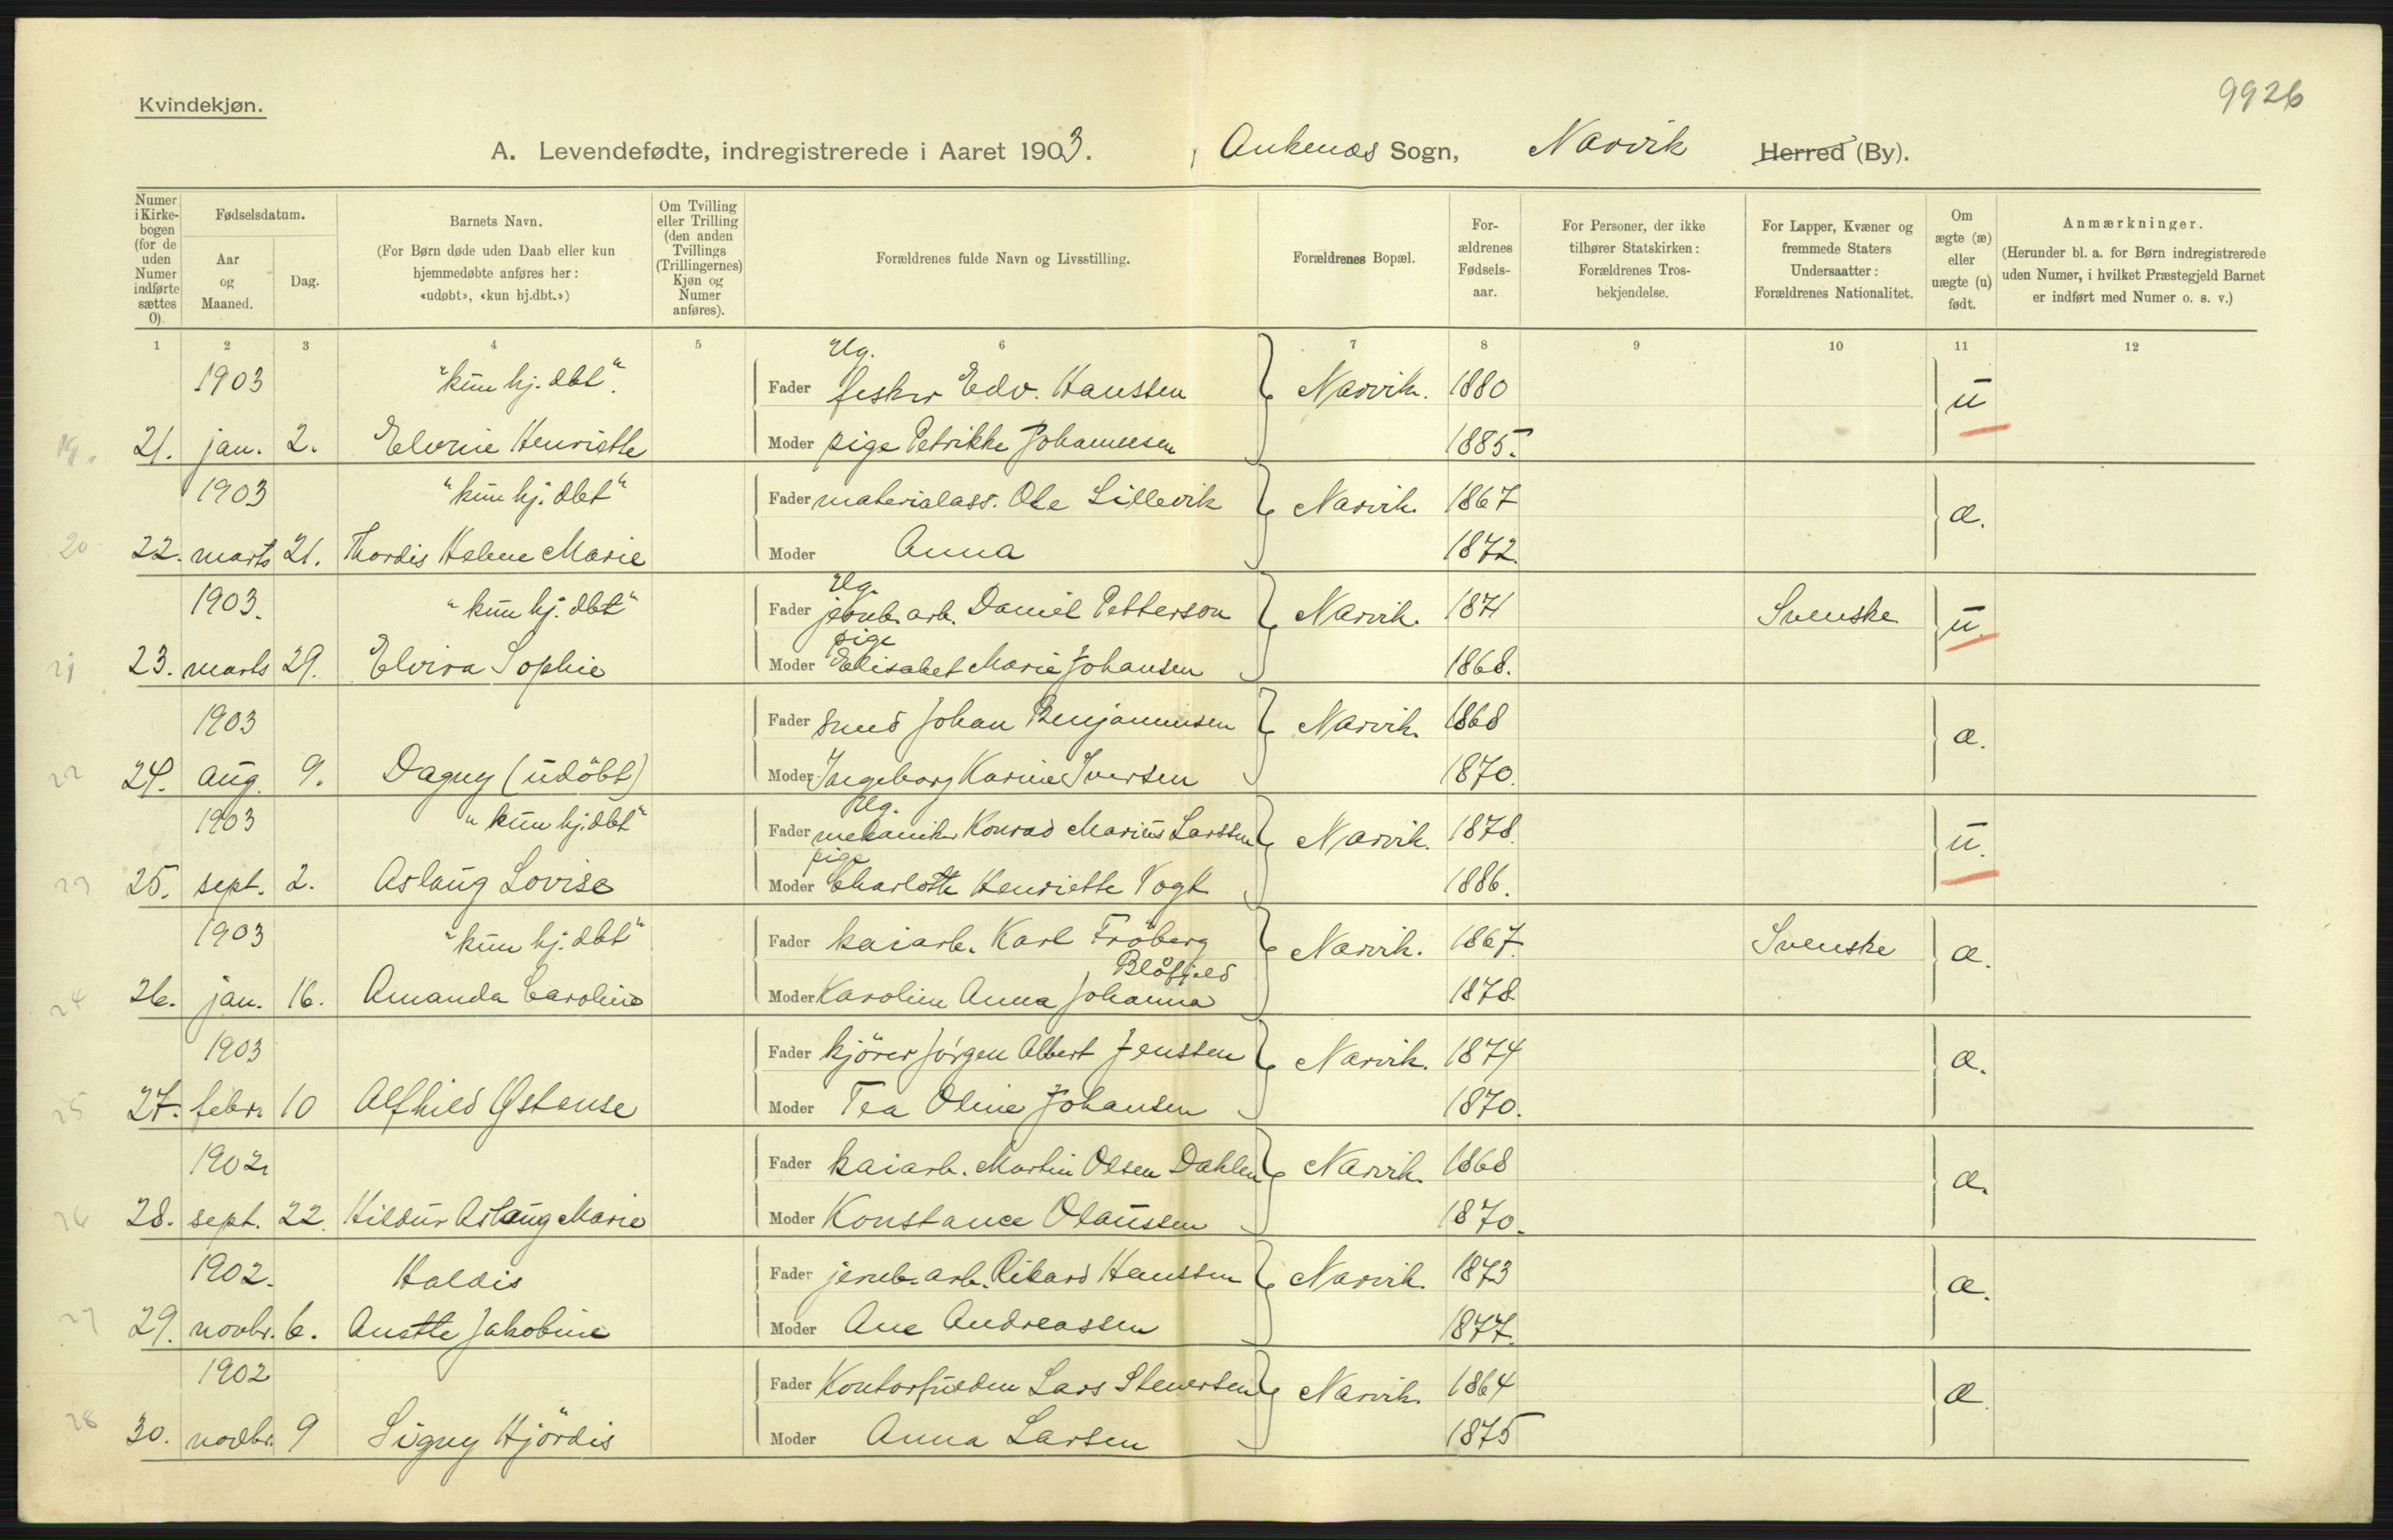 9926
Kvindekjøn.
A. Levendefødte, indregistrerede i Aaret 1903. Ankenæs Sogn, Narvik Herred (By).
Numer i Kirkebogen (for de uden Numer indførte sættes 0).
Fødselsdatum.
Aar og Maaned.
Dag.
Barnets Navn.
(For Børn døde uden Daab eller kun hjemmedøbte anføres her: «udøbt», «kun hj.dbt.»)
Om Tvilling eller Trilling (den anden Tvillings (Trillingernes) Kjøn og Numer anføres).
Forældrenes fulde Navn og Livsstilling.
Forældrenes Bopæl.
For-ældrenes Fødsels-aar.
For Personer, der ikke tilhører Statskirken: Forældrenes Tros-bekjendelse.
For Lapper, Kvæner og fremmede Staters Undersaatter: Forældrenes Nationalitet.
Om ægte (æ) eller uægte (u) født.
Anmærkninger.
(Herunder bl. a. for Børn indregistrerede uden Numer, i hvilket Præstegjeld Barnet er indført med Numer o. s. v.)
1 2 3 4 5 6 7 8 9 10 11 12
Ug.
1903 "kun hj. dbt". Fader fisker Edv. Hanssen Narvik. 1880 u
19. 21. jan. 2. Elvine Henriette Moder pige Petrikke Johannesen 1885.
1903 "kun hj. dbt" Fader materialass. Ole Lillevik Narvik. 1867 æ.
20 22. marts 21. Thordis Helene Marie Moder Anna 1872.
Ug.
1903. "kun hj. dbt" Fader jernb. arb. Daniel Petterson Narvik. 1871 Svenske u.
pige
21 23. marts 29. Elvira Sophie Moder Elisabet Marie Johansen 1868.
1903 Fader Smed Johan Benjaminsen Narvik. 1868 æ.
22 24. aug. 9. Dagny (udöbt) Moder Ingeborg Karine Iversen 1870.
Ug.
1903 "kun hj. dbt" Fader mekanik. Konrad Marius Larssen Narvik. 1878. u.
pige
23 25. sept. 2. Aslaug Lovise Moder Charlotte Henriette Vogt 1886.
1903 "kun hj. dbt" Fader kaiarb. Karl Fröberg Narvik. 1867. Svenske æ.
Blåfjeld
24 26. jan. 16. Amanda Caroline Moder Karoline Anna Johanna 1878.
1903 Fader kjörer Jörgen Albert Jenssen Narvik. 1874 æ.
25 27. febr. 10 Alfhild Østense Moder Tea Oline Johansen 1870.
1902 Fader kaiarb. Martin Olsen Dahlen Narvik. 1868 æ.
26 28. sept. 22. Hildur Aslaug Marie Moder Konstance Olaussen 1870.
1902. Haldis Fader jernb. arb. Rikard Hanssen Narvik. 1873 æ.
27 29. novbr. 6. Anette Jakobine Moder Ane Andreassen 1877.
1902 Fader Lars Stenersen Narvik. 1864 æ.
28 30. novbr. 9 Signy Hjördis Moder Anna Larsen 1875